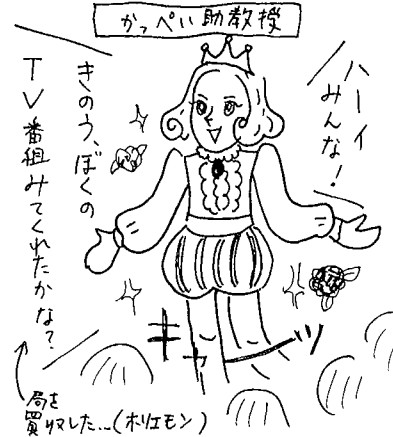 かっぺい助教授
ハーイ
みんな!
きのう、ぼくの
TV番組みてくれたかな?
キャーッ
局を
買収した…(ホリエモン)